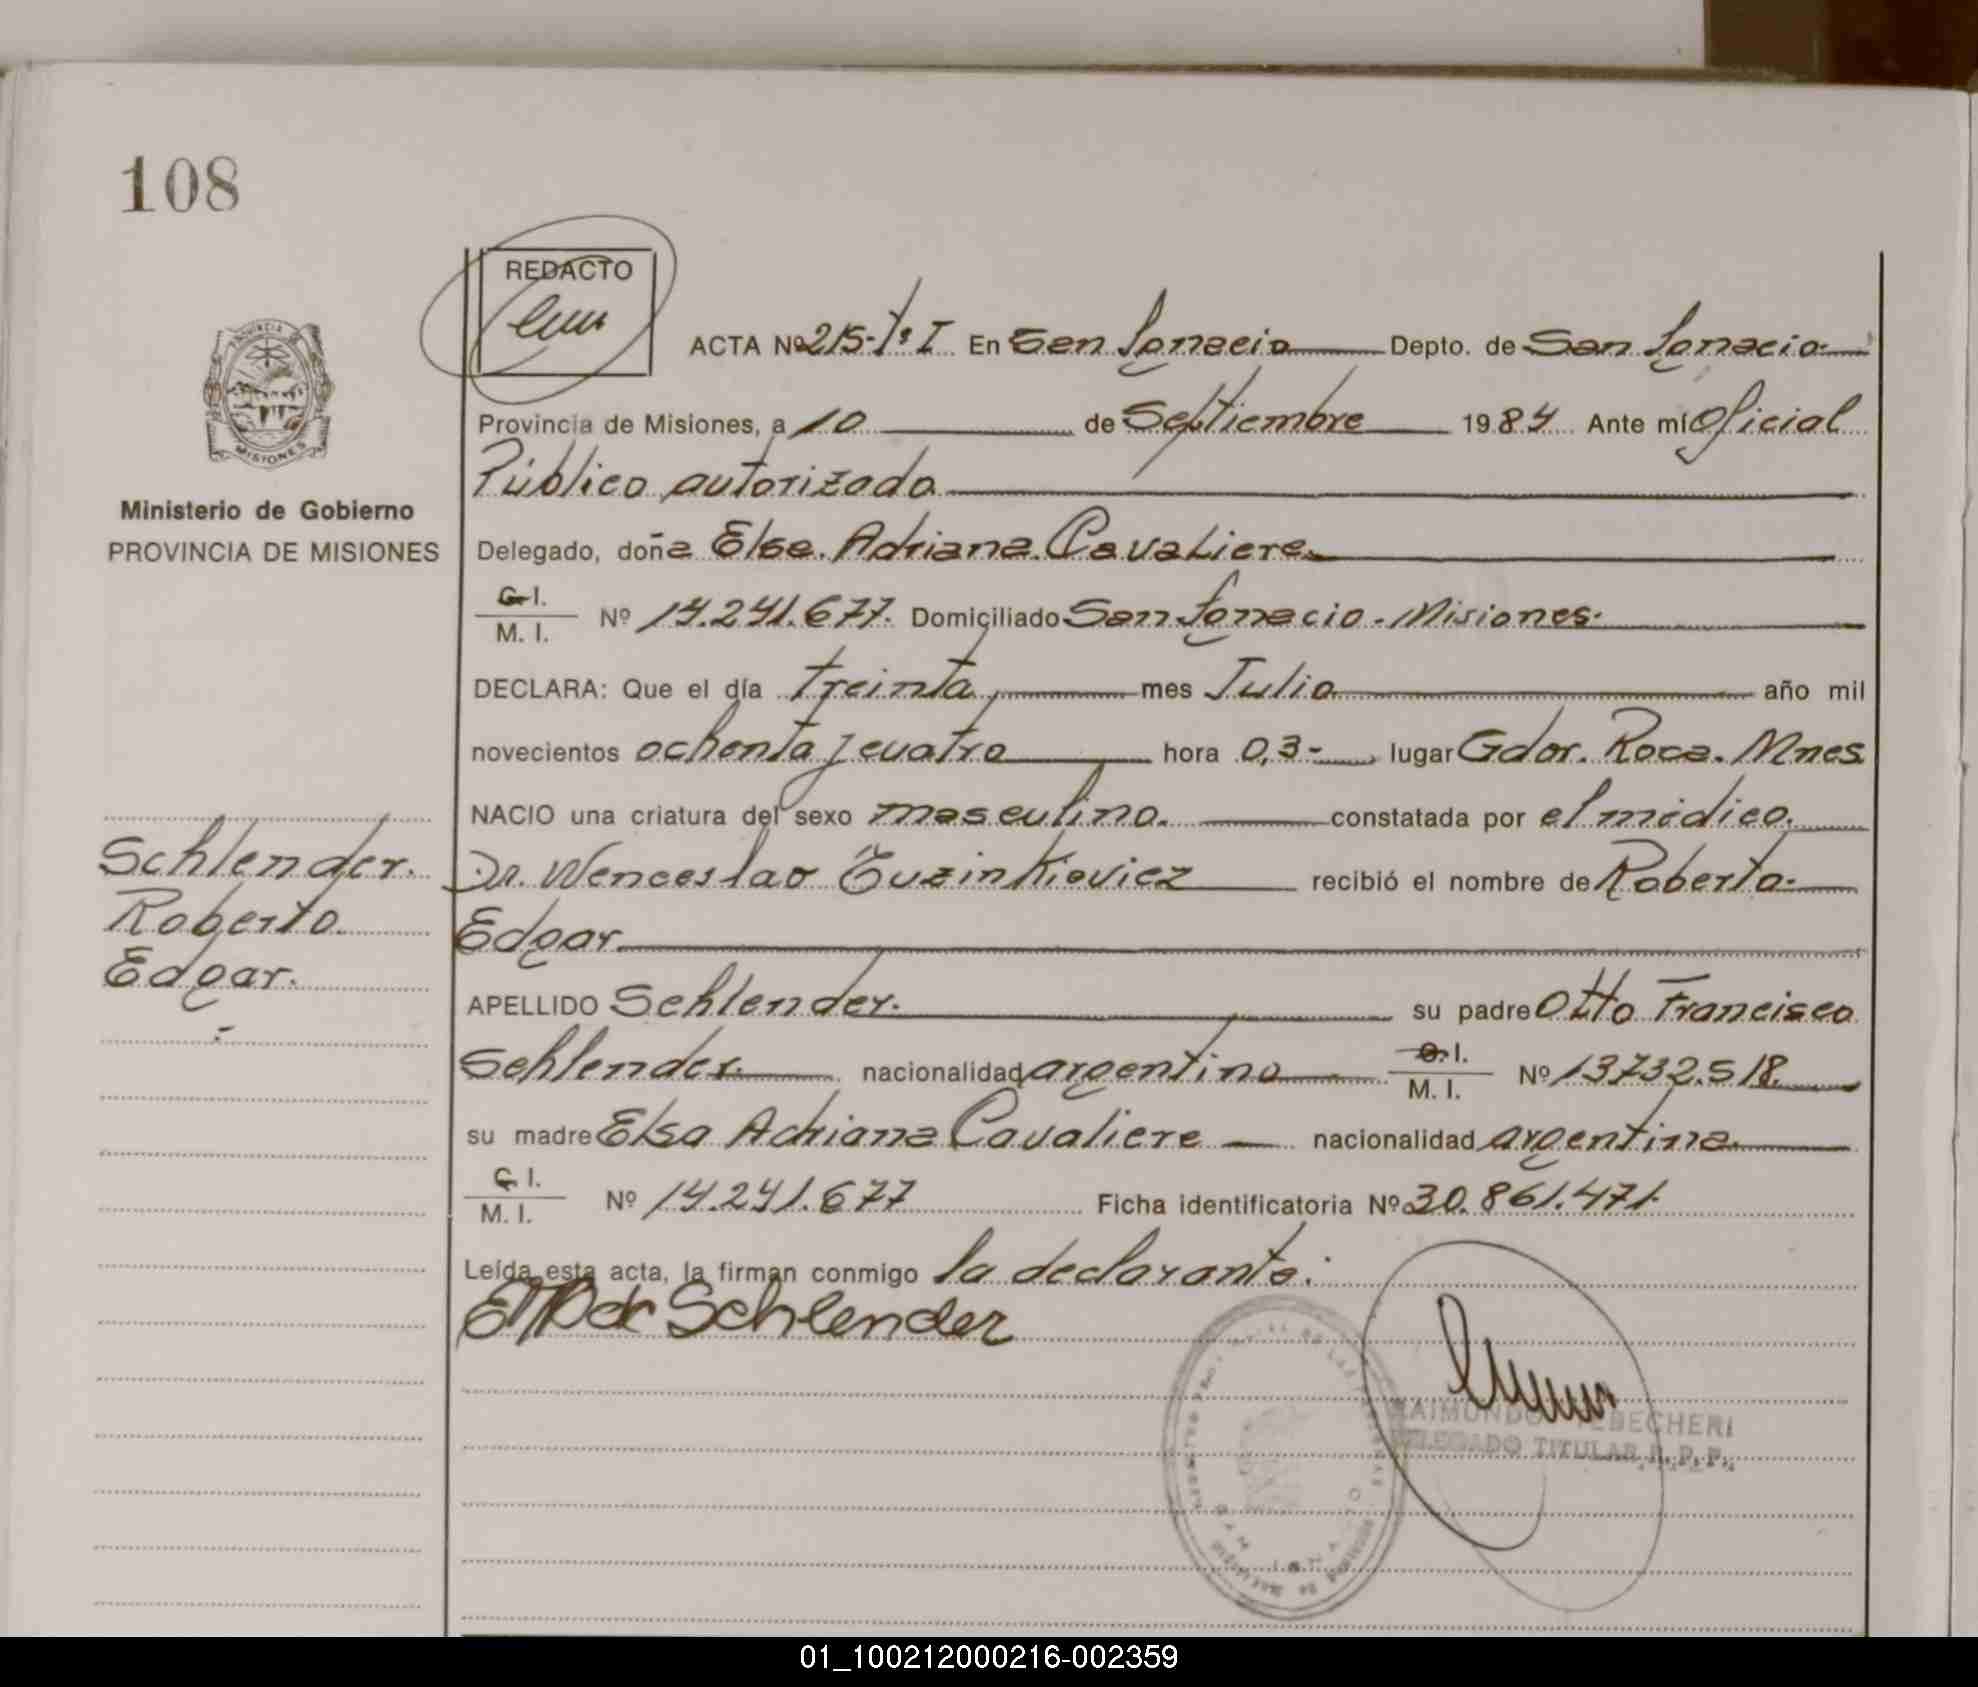 108
REDACTO
ACTA Nº 215-Tº I En San Ignacio Depto. de San Ignacio.
Provincia de Misiones, a 10 de Septiembre 1984 Ante mí Oficial
Público autorizado
PROVINCIA
MISIONES
Ministerio de Gobierno
PROVINCIA DE MISIONES
Delegado, doña Elsa Adriana Cavaliere
C. I.
M. I. Nº 14.241.677. Domiciliado San Ignacio - Misiones.
DECLARA: Que el día treinta mes Julio año mil
novecientos ochenta y cuatro hora 0,3- lugar Gdor. Roca. Mnes
NACIO una criatura del sexo masculino. constatada por el médico.
Dr. Wenceslao recibió el nombre de Roberto.
Edgar
Schlender.
Roberto
Edgar.
APELLIDO Schlender. su padre Otto Francisco
Schlender. nacionalidad argentino C. I.
M. I. Nº 13732.518.
su madre Elsa Adriana Cavaliere nacionalidad argentina
C. I.
M. I. Nº 14.241.677 Ficha identificatoria Nº 30.861.471.
Leída esta acta, la firman conmigo la declarante.
de Schlender
RAIMUNDO BECHERI
DELEGADO TITULAR R. P. P.
01_100212000216-002359